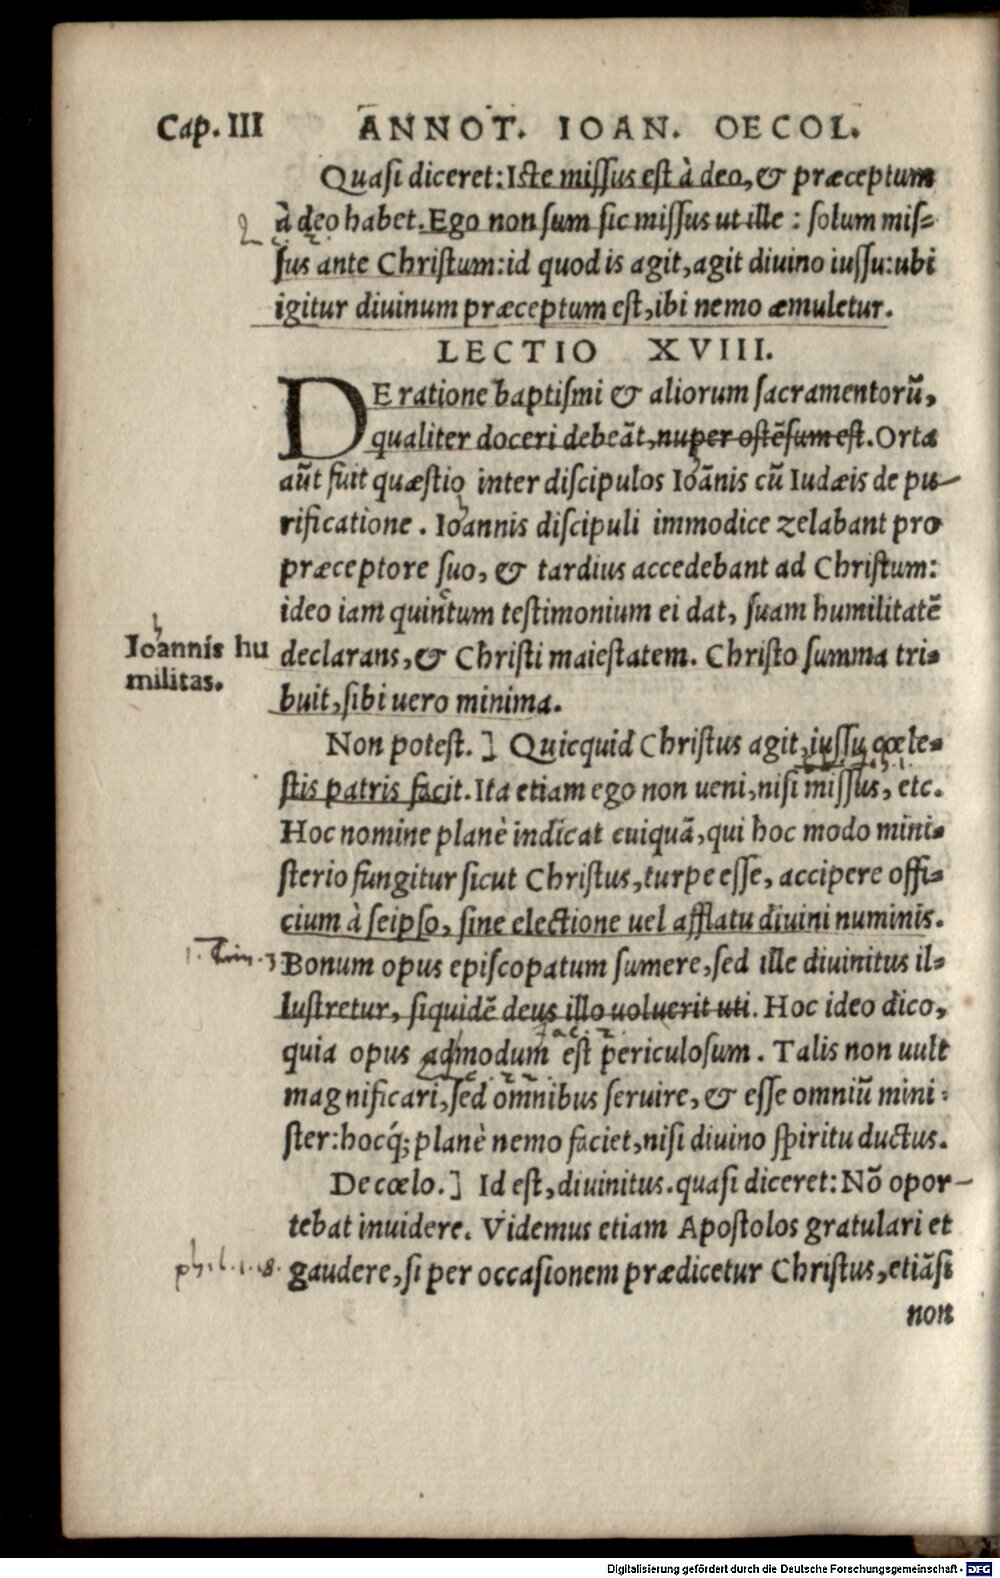 Cap. III ANNOT. IOAN. OECOL.
Quasi diceret: Iste missus est à deo, & præceptum
à deo habet. Ego non sum sic missus ut ille : solum mis-
sus ante Christum: id quod is agit, agit diuino iussu: ubi
igitur diuinum præceptum est, ibi nemo æmuletur.
LECTIO XVIII.
DE ratione baptismi & aliorum sacramentorū,
qualiter doceri debeāt, nuper ostēsum est. Orta
aūt fuit quæstio inter discipulos Ioānis cū Iudæis de pu-
rificatione. Ioannis discipuli immodice zelabant pro
præceptore suo, & tardius accedebant ad Christum:
ideo iam quintum testimonium ei dat, suam humilitatē
Ioannis hu
militas.
declarans, & Christi maiestatem. Christo summa tri-
buit, sibi uero minima.
Non potest.] Quicquid Christus agit, iussu cœle-
stis patris facit. Ita etiam ego non ueni, nisi missus, etc.
Hoc nomine planè indicat cuiquā, qui hoc modo mini-
sterio fungitur sicut Christus, turpe esse, accipere offi-
cium à seipso, sine electione uel afflatu diuini numinis.
1. Tim. 3
Bonum opus episcopatum sumere, sed ille diuinitus il-
lustretur, siquidē deus illo uoluerit uti. Hoc ideo dico,
quia opus admodum est periculosum. Talis non uult
magnificari, sed omnibus seruire, & esse omniū mini-
ster: hocq́; planè nemo faciet, nisi diuino spiritu ductus.
De cœlo.] Id est, diuinitus. quasi diceret: Nō opor-
tebat inuidere. Videmus etiam Apostolos gratulari et
phil. 1. 18.
gaudere, si per occasionem prædicetur Christus, etiāsi
non
Digitalisierung gefördert durch die Deutsche Forschungsgemeinschaft - DFG